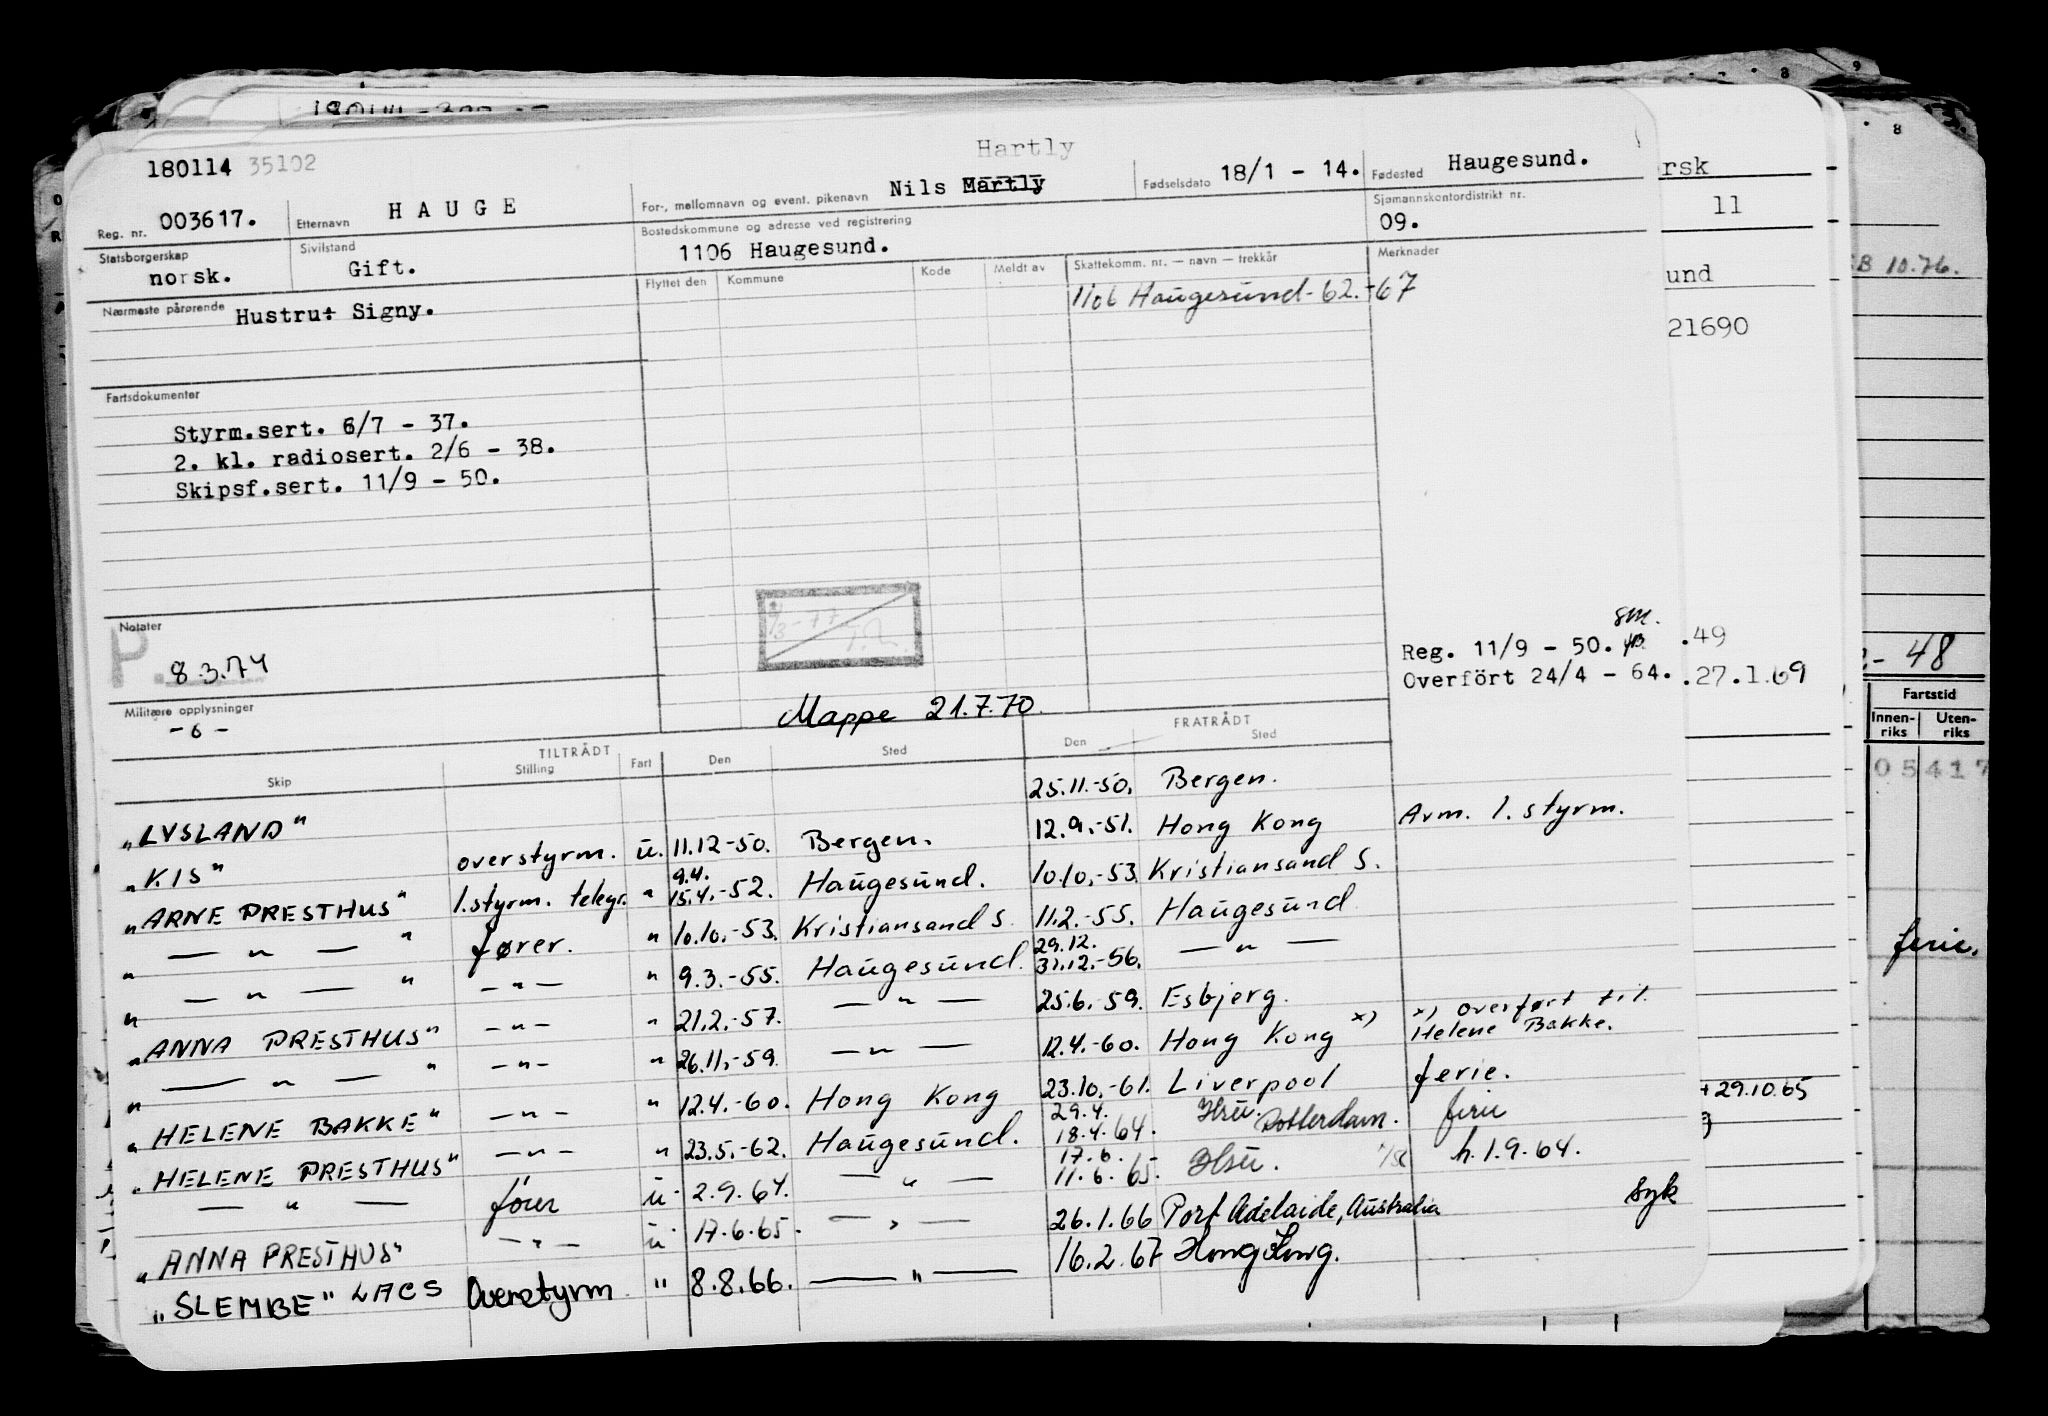 180114 35102
Hartly
Reg. nr. 003617.
Etternavn H A U G E
For-, mellomnavn og event. pikenavn Nils Martly
Fødselsdato 18/1 - 14.
Fødested Haugesund.
rsk
Statsborgerskap
norsk.
Sivilstand
Gift.
Bostedskommune og adresse ved registrering
1106 Haugesund.
Sjømannskontordistrikt nr.
09.
11
Nærmeste pårørende Hustru: Signy.
Flyttet den Kommune Kode Meldt av Skattekomm. nr. — navn — trekkår Merknader
1106 Haugesund-62.-67
B 10.76.
und
21690
Fartsdokumenter
Styrm.sert. 6/7 - 37.
2. kl. radiosert. 2/6 - 38.
Skipsf.sert. 11/9 - 50.
Notater
P.
8.3.74
Reg. 11/9 - 50.
Overfört 24/4 - 64.
.49
.27.1.69
- 48
Militære opplysninger
- 6 -
Mappe 21.7.70
Fartstid
Innen-riks Uten-riks
05417
TILTRÅDT FRATRÅDT
Skip Stilling Fart Den Sted Den Sted
"LYSLAND" 25.11.-50. Bergen.
"KIS" overstyrm. u. 11.12-50. Bergen. 12.9.-51. Hong Kong Avm. 1. styrm.
"ARNE PRESTHUS" 1.styrm. telegr. " 9.4. 15.4.-52. Haugesund. 10.10.-53. Kristiansand S.
" — " — " fører. " 10.10.-53. Kristiansand S. 11.2.-55. Haugesund
" — " — " — " — " 9.3.-55. Haugesund. 29.12. 31.12.-56. — " —
"ANNA PRESTHUS" — " — " 21.2.-57. — " — 25.6.-59. Esbjerg.
" — " — " — " — " 26.11.-59. — " — 12.4.-60. Hong Kong x) x) overført til Helene Bakke.
"HELENE BAKKE" — " — " 12.4.-60. Hong Kong 23.10.-61. Liverpool ferie.
"HELENE PRESTHUS" — " — " 23.5.-62. Haugesund. 29.4. 18.4.64. Hsu. Rotterdam. ferie
— " — fører u 2.9.64. — " — 17.6. 11.6.65. Hsu. h.1.9.64.
"ANNA PRESTHUS" — " — u 17.6.65. — " — 26.1.66 Port Adelaide, Australia syk
"SLEMBE" LACS Overstyrm " 8.8.66. — " — 16.2.67 Hong Kong.
ferie.
+29.10.65